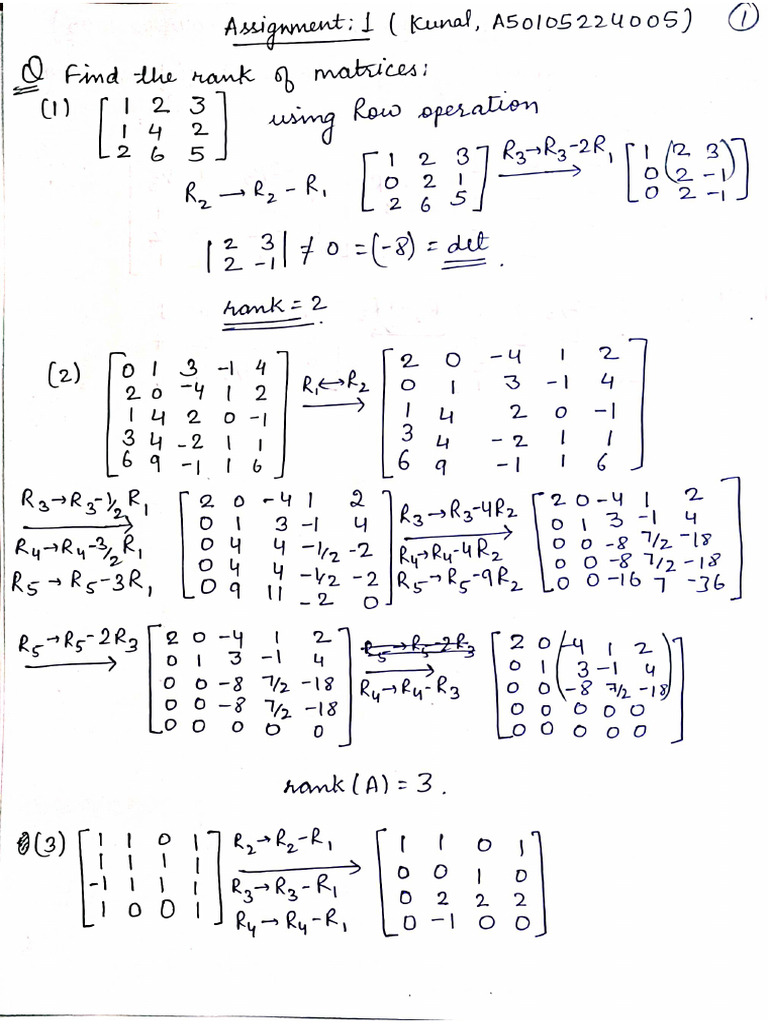 Assignment: 1 ( Kunal, A50105224005) ①
Q Find the rank of matrices:
(1) [1 2 3; 1 4 2; 2 6 5] using Row operation
R2 → R2 - R1 [1 2 3; 0 2 1; 2 6 5] R3→R3-2R1 [1 2 3; 0 2 -1; 0 2 -1]
|2 3; 2 -1| ≠ 0 = (-8) = det.
rank = 2
(2) [0 1 3 -1 4; 2 0 -4 1 2; 1 4 2 0 -1; 3 4 -2 1 1; 6 9 -1 1 6] R1↔R2 [2 0 -4 1 2; 0 1 3 -1 4; 1 4 2 0 -1; 3 4 -2 1 1; 6 9 -1 1 6]
R3→R3-1/2R1 R4→R4-3/2R1 R5→R5-3R1 [2 0 -4 1 2; 0 1 3 -1 4; 0 4 4 -1/2 -2; 0 4 4 -1/2 -2; 0 9 11 -2 0] R3→R3-4R2 R4→R4-4R2 R5→R5-9R2 [2 0 -4 1 2; 0 1 3 -1 4; 0 0 -8 7/2 -18; 0 0 -8 7/2 -18; 0 0 -16 7 -36]
R5→R5-2R3 [2 0 -4 1 2; 0 1 3 -1 4; 0 0 -8 7/2 -18; 0 0 -8 7/2 -18; 0 0 0 0 0] R5→R5-2R3 R4→R4-R3 [2 0 -4 1 2; 0 1 3 -1 4; 0 0 -8 7/2 -18; 0 0 0 0 0; 0 0 0 0 0]
rank (A) = 3.
(3) [1 1 0 1; 1 1 1 1; -1 1 1 1; 1 0 0 1] R2→R2-R1 R3→R3-R1 R4→R4-R1 [1 1 0 1; 0 0 1 0; 0 2 2 2; 0 -1 0 0]